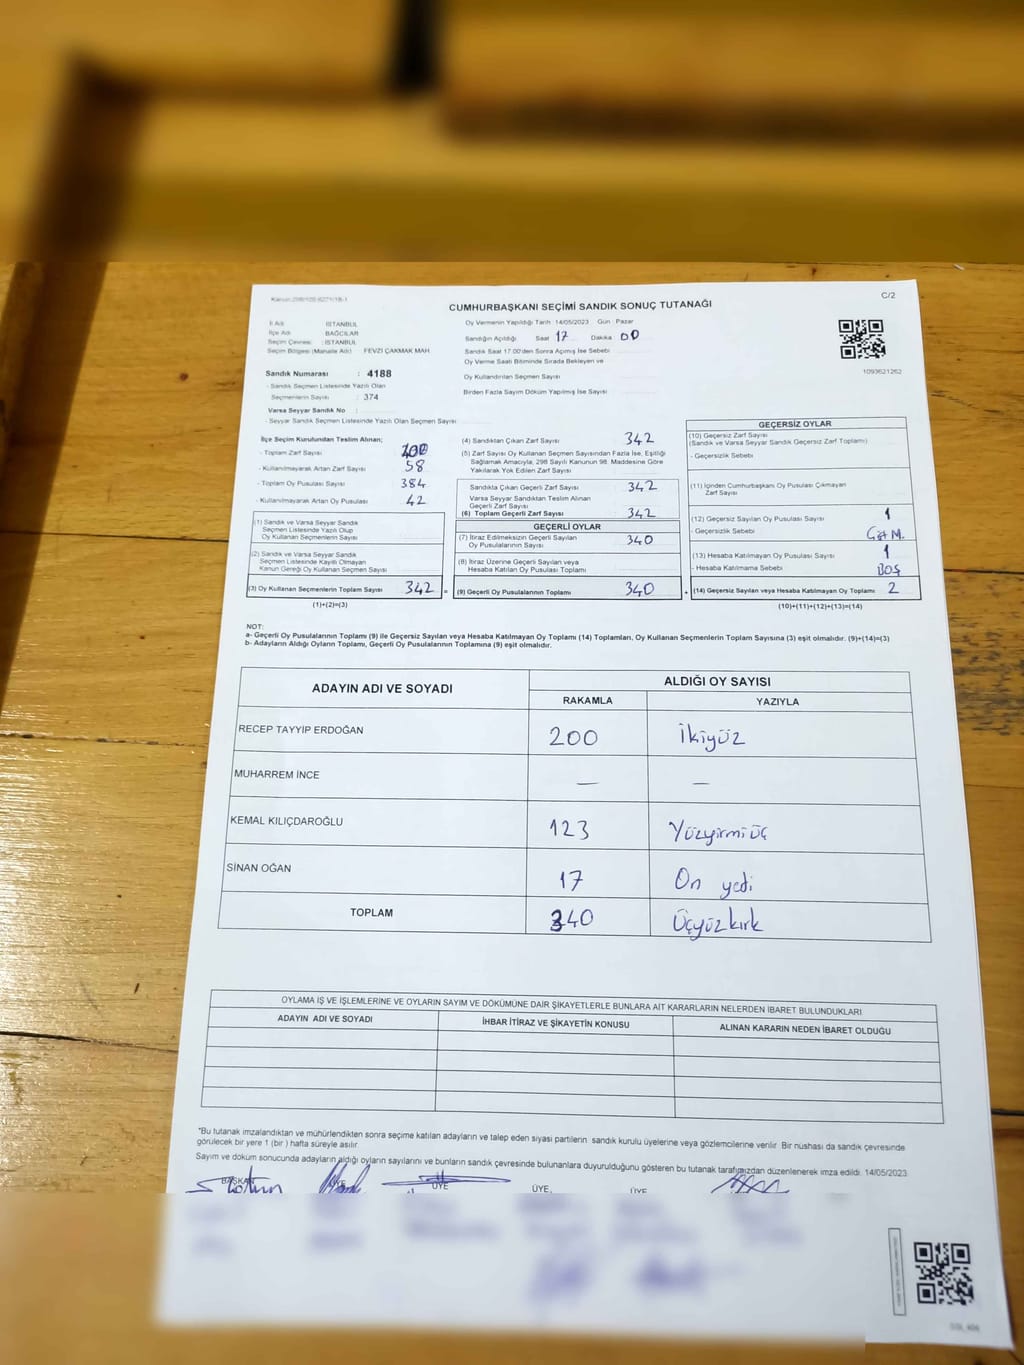 CUMHURBAŞKANI SEÇİMİ SANDIK SONUÇ TUTANAĞI
C/2
İl Adı : İSTANBUL
İlçe Adı : BAĞCILAR
Seçim Çevresi : İSTANBUL
Seçim Bölgesi (Mahalle Adı) : FEVZİ ÇAKMAK MAH
Sandık Numarası : 4188
- Sandık Seçmen Listesinde Yazılı Olan
Seçmenlerin Sayısı : 374
Varsa Seyyar Sandık No :
- Seyyar Sandık Seçmen Listesinde Yazılı Olan Seçmen Sayısı
Oy Vermenin Yapıldığı Tarih :14/05/2023 Gün : Pazar
Sandığın Açıldığı Saat 17 Dakika 00
Sandık Saat 17.00'den Sonra Açımış İse Sebebi
Oy Verme Saati Bitiminde Sırada Bekleyen ve
Oy Kullandırılan Seçmen Sayısı
Birden Fazla Sayım Döküm Yapılmış İse Sayısı
1093621262
İlçe Seçim Kurulundan Teslim Alınan;
- Toplam Zarf Sayısı 400
- Kullanılmayarak Artan Zarf Sayısı 58
- Toplam Oy Pusulası Sayısı 384
- Kullanılmayarak Artan Oy Pusulası 42
(1) Sandık ve Varsa Seyyar Sandık
Seçmen Listesinde Yazılı Olup
Oy Kullanan Seçmenlerin Sayısı
(2) Sandık ve Varsa Seyyar Sandık
Seçmen Listesinde Kayıtlı Olmayan
Kanun Gereği Oy Kullanan Seçmen Sayısı
(3) Oy Kullanan Seçmenlerin Toplam Sayısı 342
(1)+(2)=(3)
(4) Sandıktan Çıkan Zarf Sayısı 342
(5) Zarf Sayısı Oy Kullanan Seçmen Sayısından Fazla İse, Eşitliği
Sağlamak Amacıyla, 298 Sayılı Kanunun 98. Maddesine Göre
Yakılarak Yok Edilen Zarf Sayısı
Sandıkta Çıkan Geçerli Zarf Sayısı 342
Varsa Seyyar Sandıktan Teslim Alınan
Geçerli Zarf Sayısı
(6) Toplam Geçerli Zarf Sayısı 342
GEÇERLİ OYLAR
(7) İtiraz Edilmeksizin Geçerli Sayılan
Oy Pusulalarının Sayısı 340
(8) İtiraz Üzerine Geçerli Sayılan veya
Hesaba Katılan Oy Pusulası Toplamı
= (9) Geçerli Oy Pusulalarının Toplamı 340
GEÇERSİZ OYLAR
(10) Geçersiz Zarf Sayısı
(Sandık ve Varsa Seyyar Sandık Geçersiz Zarf Toplamı)
- Geçersizlik Sebebi
(11) İçinden Cumhurbaşkanı Oy Pusulası Çıkmayan
Zarf Sayısı
(12) Geçersiz Sayılan Oy Pusulası Sayısı 1
- Geçersizlik Sebebi
(13) Hesaba Katılmayan Oy Pusulası Sayısı 1
- Hesaba Katılmama Sebebi BOŞ
+ (14) Geçersiz Sayılan veya Hesaba Katılmayan Oy Toplamı 2
(10)+(11)+(12)+(13)=(14)
NOT:
a- Geçerli Oy Pusulalarının Toplamı (9) ile Geçersiz Sayılan veya Hesaba Katılmayan Oy Toplamı (14) Toplamları, Oy Kullanan Seçmenlerin Toplam Sayısına (3) eşit olmalıdır. (9)+(14)=(3)
b- Adayların Aldığı Oyların Toplamı, Geçerli Oy Pusulalarının Toplamına (9) eşit olmalıdır.
ADAYIN ADI VE SOYADI
ALDIĞI OY SAYISI
RAKAMLA YAZIYLA
RECEP TAYYİP ERDOĞAN 200 İkiyüz
MUHARREM İNCE — —
KEMAL KILIÇDAROĞLU 123 Yüzyirmiüç
SİNAN OĞAN 17 On yedi
TOPLAM 340 Üçyüzkırk
OYLAMA İŞ VE İŞLEMLERİNE VE OYLARIN SAYIM VE DÖKÜMÜNE DAİR ŞİKAYETLERLE BUNLARA AİT KARARLARIN NELERDEN İBARET BULUNDUKLARI
ADAYIN ADI VE SOYADI İHBAR İTİRAZ VE ŞİKAYETİN KONUSU ALINAN KARARIN NEDEN İBARET OLDUĞU
"Bu tutanak imzalandıktan ve mühürlendikten sonra seçime katılan adayların ve talep eden siyasi partilerin sandık kurulu üyelerine veya gözlemcilerine verilir. Bir nüshası da sandık çevresinde
görülecek bir yere 1 (bir ) hafta süreyle asılır.
Sayım ve döküm sonucunda adayların aldığı oyların sayılarını ve bunların sandık çevresinde bulunanlara duyurulduğunu gösteren bu tutanak tarafımızdan düzenlenerek imza edildi. 14/05/2023
BAŞKAN ÜYE ÜYE ÜYE ÜYE